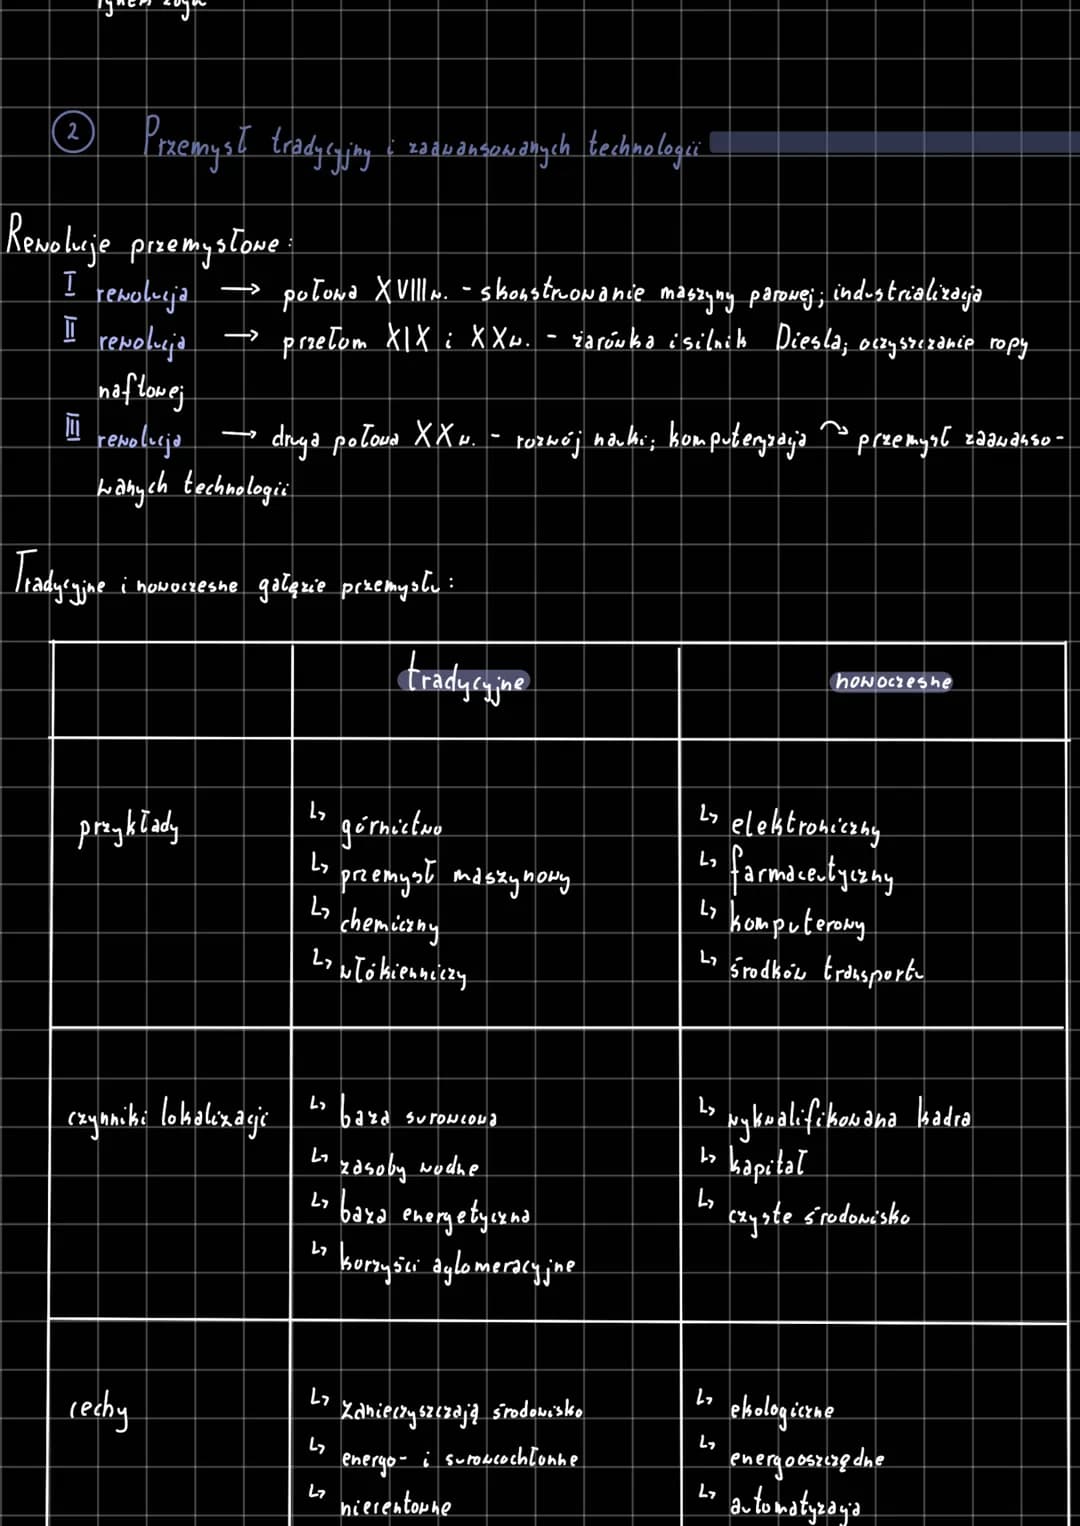 rynek zbytu
② Przemysł tradycyjny i zaawansowanych technologii
Rewolucje przemysłowe:
I rewolucja → połowa XVIII w. - skonstruowanie maszyny parowej; industrializacja
II rewolucja → przełom XIX i XX w. - żarówka i silnik Diesla; oczyszczanie ropy
naftowej
III rewolucja → druga połowa XX w. - rozwój nauki; komputeryzacja ↷ przemysł zaawanso-
wanych technologii
Tradycyjne i nowoczesne gałęzie przemysłu:
tradycyjne nowoczesne
przykłady
↳ górnictwo
↳ przemysł maszynowy
↳ chemiczny
↳ włókienniczy
↳ elektroniczny
↳ farmaceutyczny
↳ komputerowy
↳ środków transportu
czynniki lokalizacji
↳ baza surowcowa
↳ zasoby wodne
↳ baza energetyczna
↳ korzyści aglomeracyjne
↳ wykwalifikowana kadra
↳ kapitał
↳ czyste środowisko
cechy
↳ zanieczyszczają środowisko
↳ energo- i surowcochłonne
↳ nierentowne
↳ ekologiczne
↳ energooszczędne
↳ automatyzacja